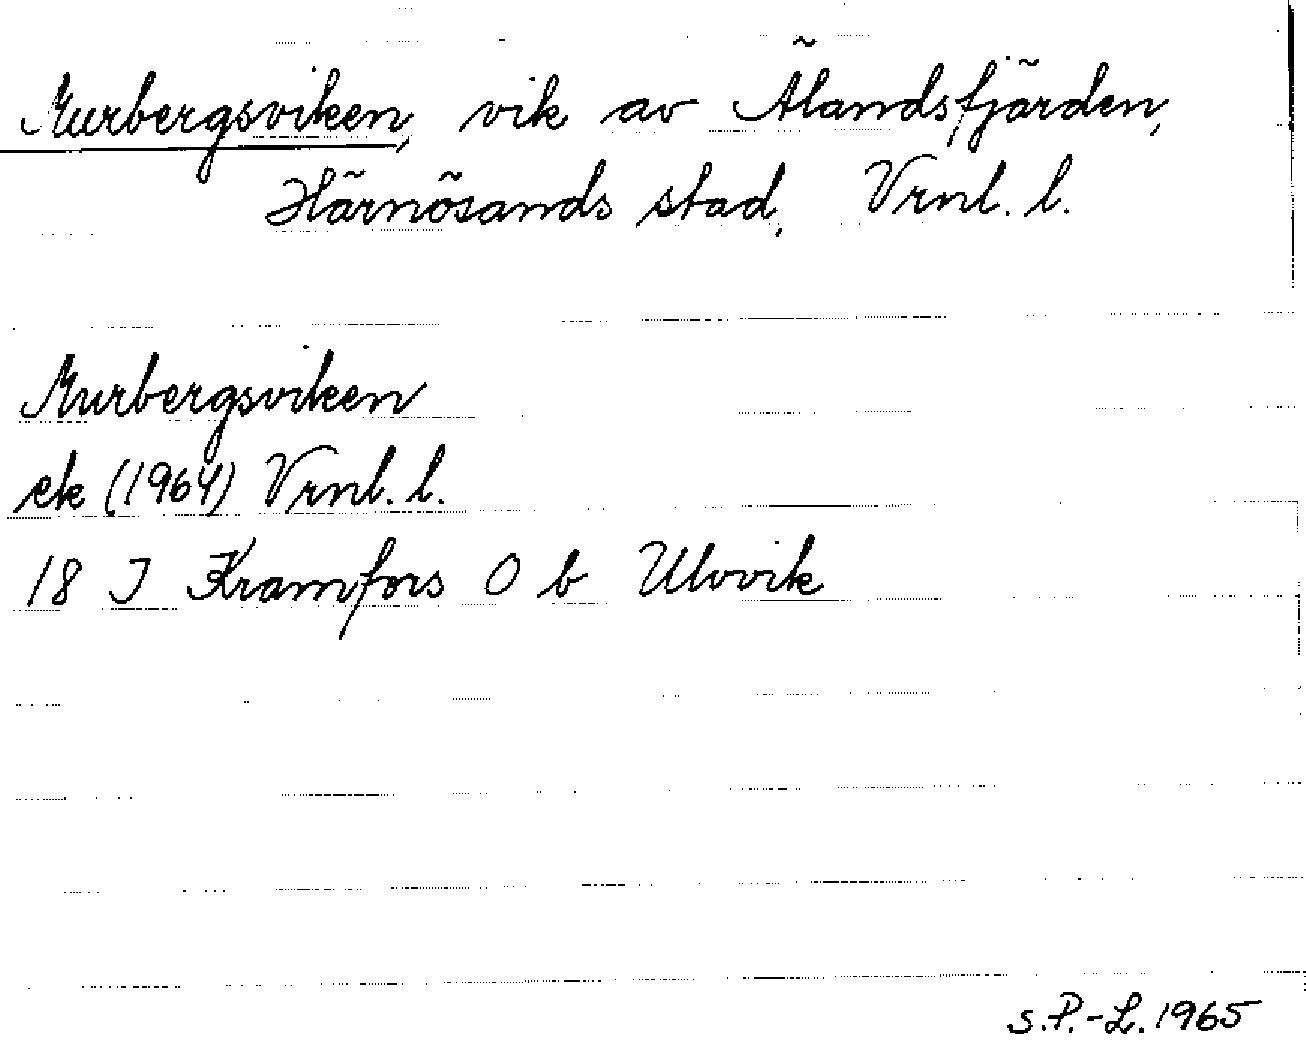 Murbergsviken, vik av Älandsfjärden,
Härnösands stad, Vrnl. l.
Murbergsviken
ek (1964) Vrnl. l.
18 J Kramfors O b Ulvvik
S.P.-L. 1965